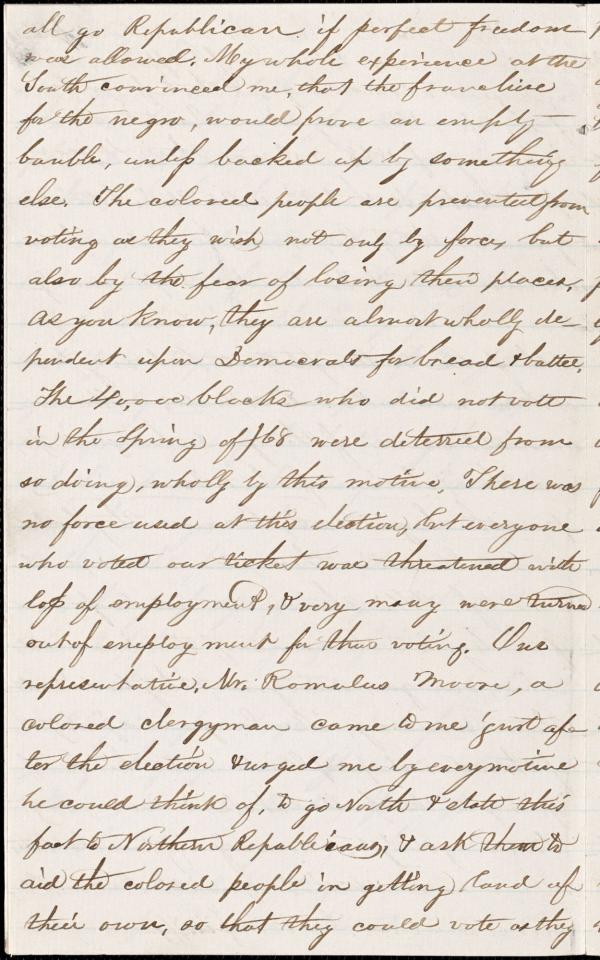 all go Republican. if perfect freedom
was allowed. My whole experience at the
South convinced me, that the franchise
for the negro, would prove an empty
bauble, unless backed up by something
else. The colored people are prevented from
voting as they wish not only by force, but
also by the fear of losing their places.
As you know, they are almost wholly de-
pendent upon Democrats for bread & butter.
The 40,000 blacks who did not vote
in the Spring of /68 were deterred from
so doing, wholly by this motive. There was
no force used at this election, but everyone
who voted our ticket was threatened with
loss of employment, & very many were turned
out of employment for thus voting. Our
representative, Mr. Romulus Moore, a
colored clergyman came to me just af-
ter the election & urged me by every motive
he could think of, to go North & state this
fact to Northern Republicans, & ask them to
aid the colored people in getting land of
their own, so that they could vote as they